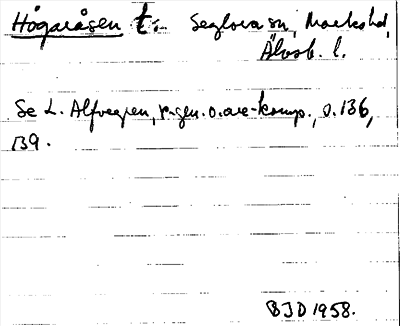 Högaråsen t. Seglora sn, Marks hd,
Älvsb. l.
Se L. Alfvegren, r-gen. o. are-komp., s. 136,
139.
BJD 1958.